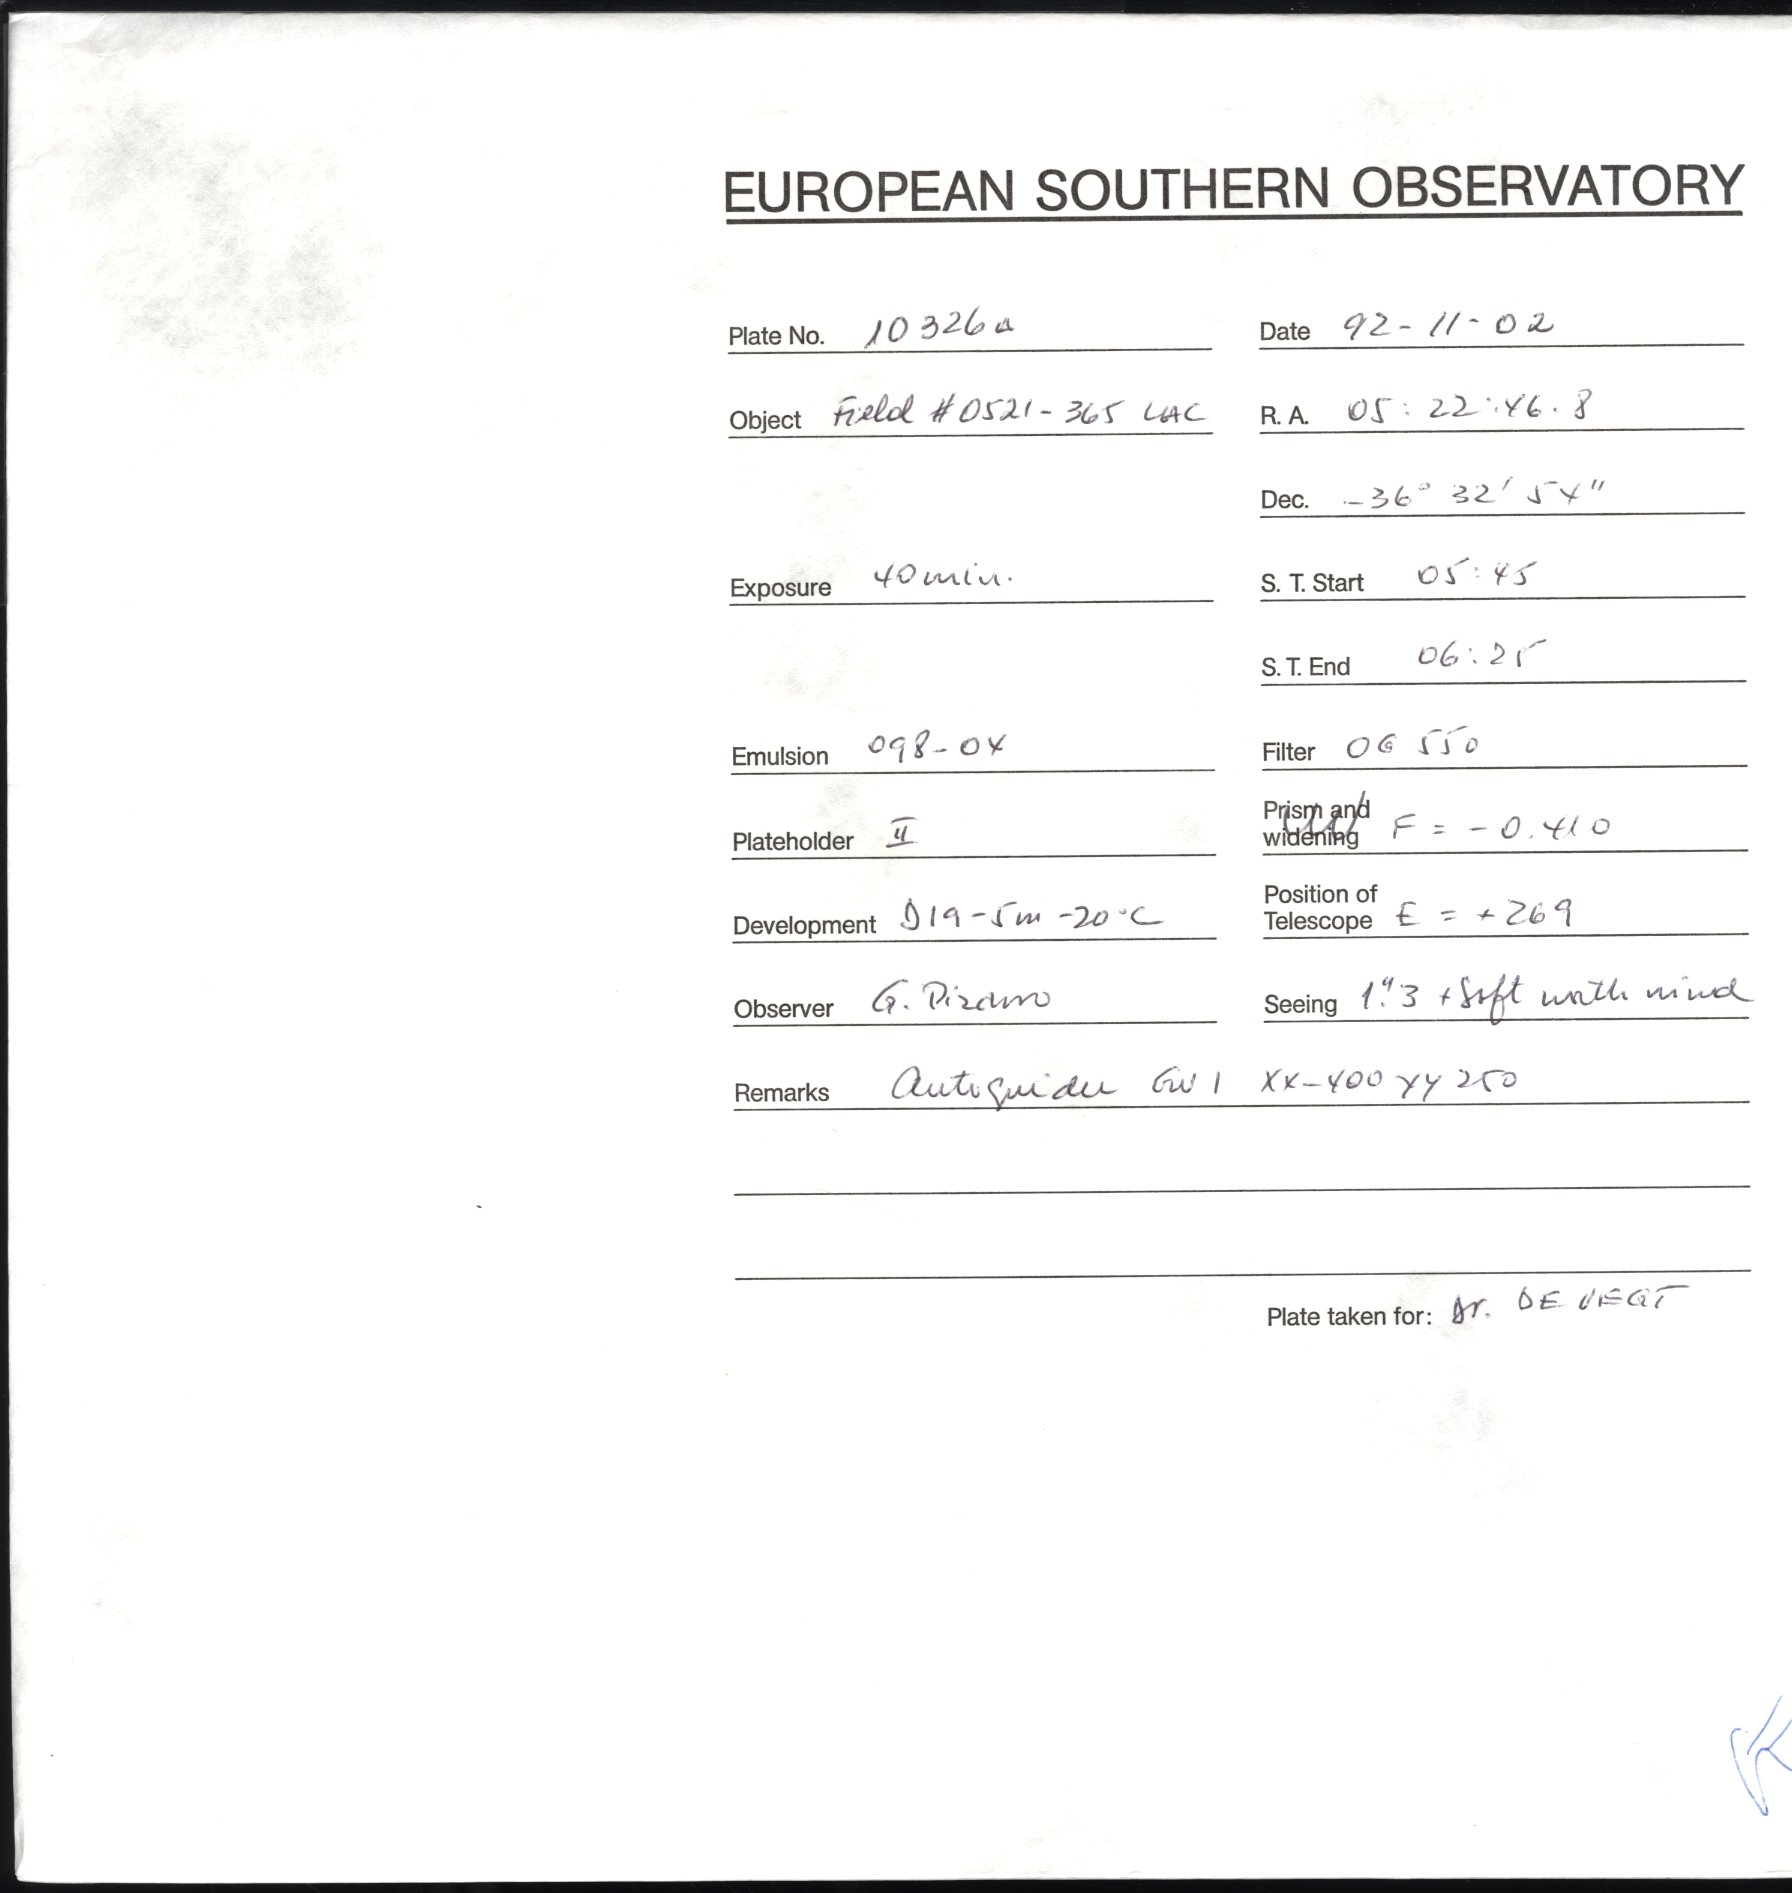 EUROPEAN SOUTHERN OBSERVATORY
Plate No. 10326a Date 92-11-02
Object Field #0521-365 LAC R. A. 05:22:46.8
Dec. -36° 32' 54"
Exposure 40min. S. T. Start 05:45
S. T. End 06:25
Emulsion 098-04 Filter OG 550
Plateholder II Prism and widening F = -0.410
Development D19-5m-20°C Position of Telescope E = +269
Observer G. Pizarro Seeing 1".3 + Soft north wind
Remarks Autoguider GW1 XX-400 YY 250
Plate taken for: Dr. DE VEGT